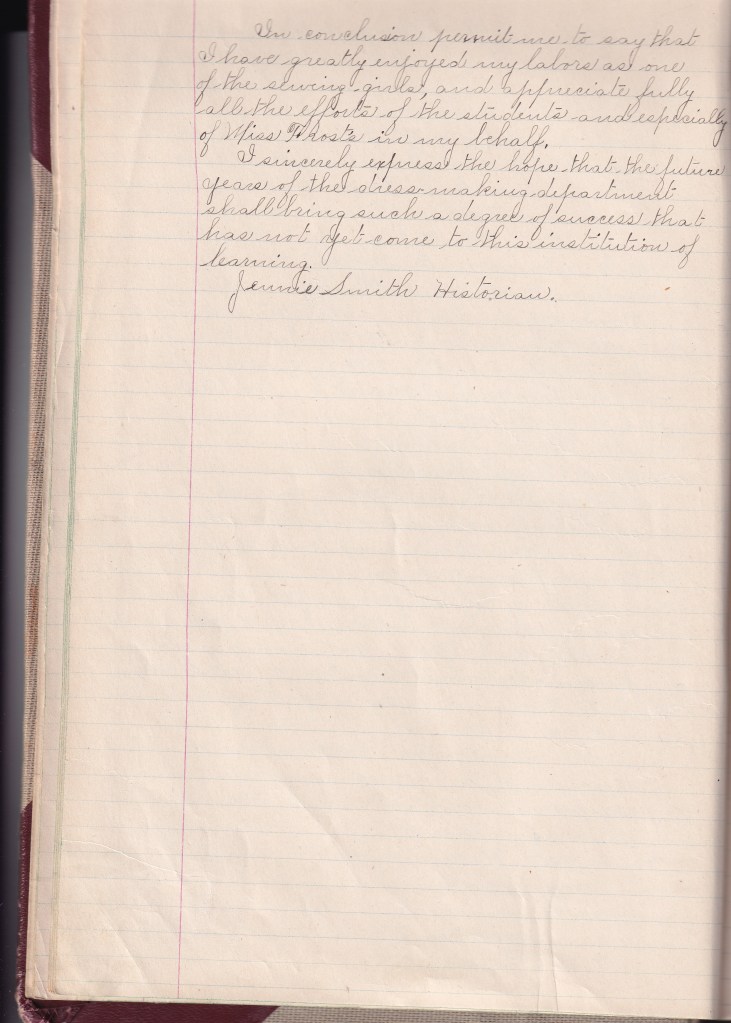 In conclusion permit me to say that
I have greatly enjoyed my labors as one
of the sewing girls, and appreciate fully
all the efforts of the students and especially
of Miss Frosts in my behalf.
I sincerely express the hope that the future
years of the dress-making department
shall bring such a degree of success that
has not yet come to this institution of
learning.
Jennie Smith Historian.